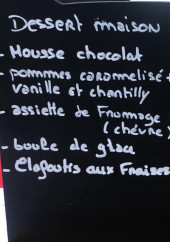 Dessert maison
- Mousse chocolat
- pommmes caramelisé +
vanille et chantilly
- assiette de Fromage
(chévre)
- boule de glace
- Clafoutis aux Fraises